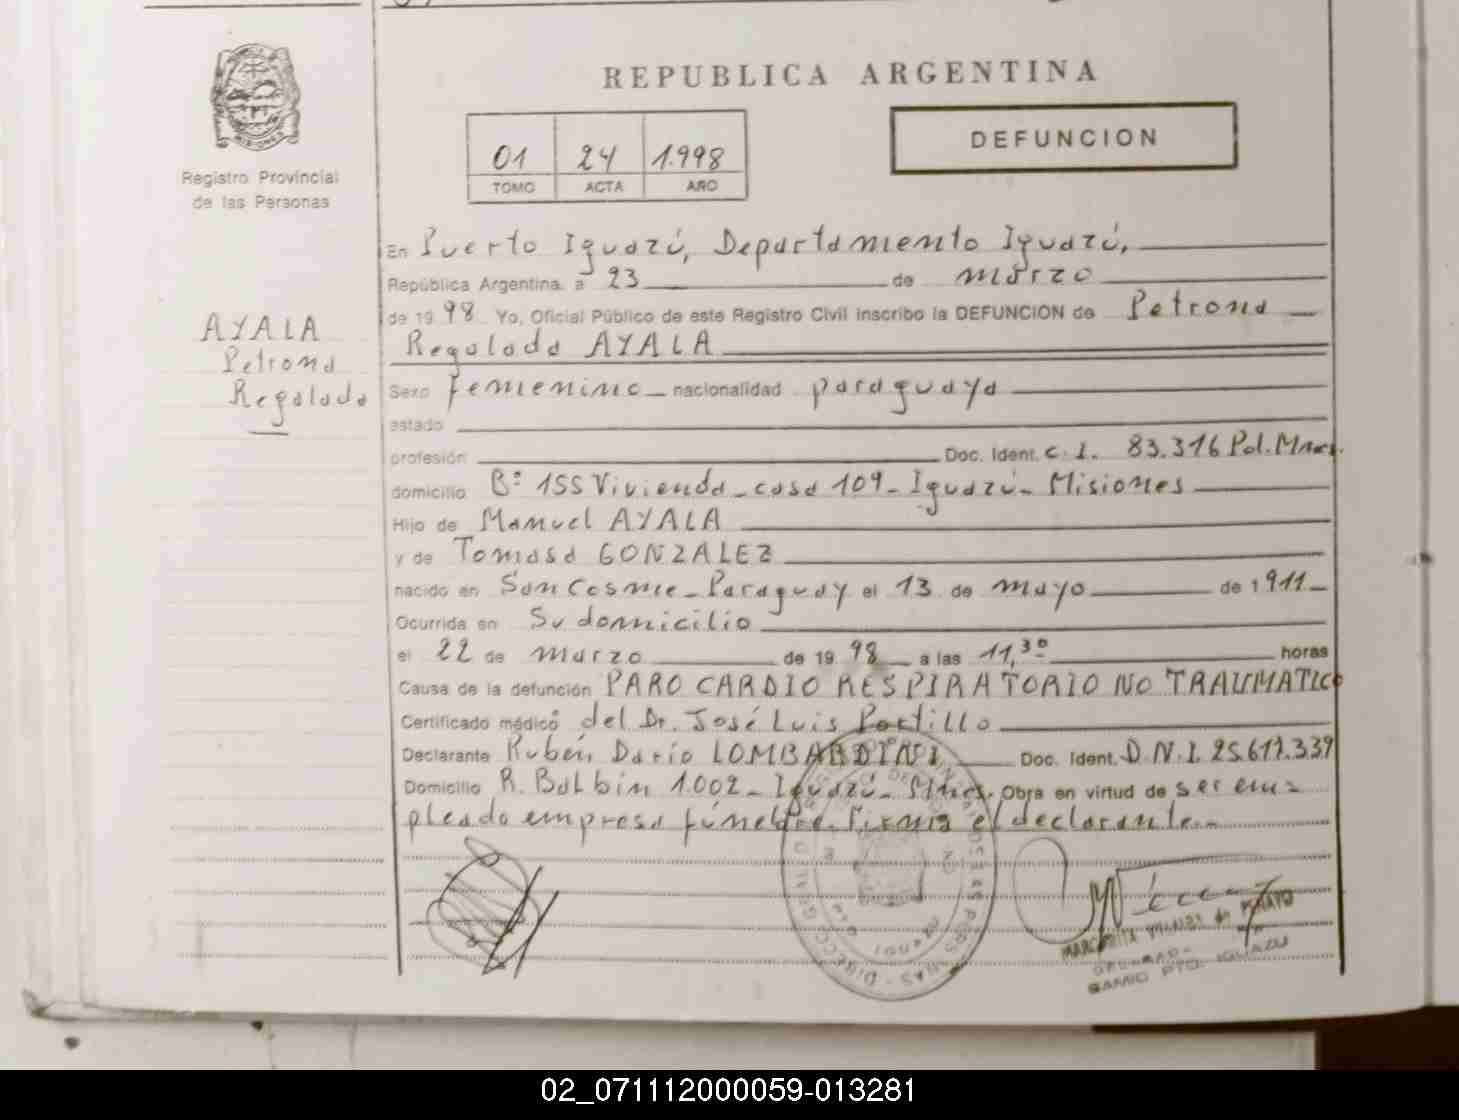 REPUBLICA ARGENTINA
DEFUNCION
01 24 1.998
TOMO ACTA AÑO
MISIONES
Registro Provincial
de las Personas
AYALA
Petrona
Regalada
En Puerto Iguazú, Departamento Iguazú,
República Argentina, a 23 de marzo
de 19 98 Yo, Oficial Público de este Registro Civil inscribo la DEFUNCION de Petrona
Regalada AYALA
Sexo femenino nacionalidad paraguaya
estado
profesión Doc. Ident. C.I. 83.316 Pol. Mnes.
domicilio B° 155 Vivienda - casa 109 - Iguazú - Misiones
Hijo de Manuel AYALA
y de Tomasa GONZALEZ
nacido en San Cosme - Paraguay el 13 de mayo de 1911
Ocurrida en Su domicilio
el 22 de marzo de 19 98 a las 11,30 horas
Causa de la defunción PARO CARDIO RESPIRATORIO NO TRAUMATICO
Certificado médico del Dr. José Luis Portillo
Declarante Rubén Darío LOMBARDINI Doc. Ident. D.N.I. 25.611.339
Domicilio R. Balbin 1.002 - Iguazú - Mnes. Obra en virtud de ser em=
pleado empresa fúnebre. Firma el declarante.-
MARGARITA de
PTO. IGUAZU
02_071112000059-013281